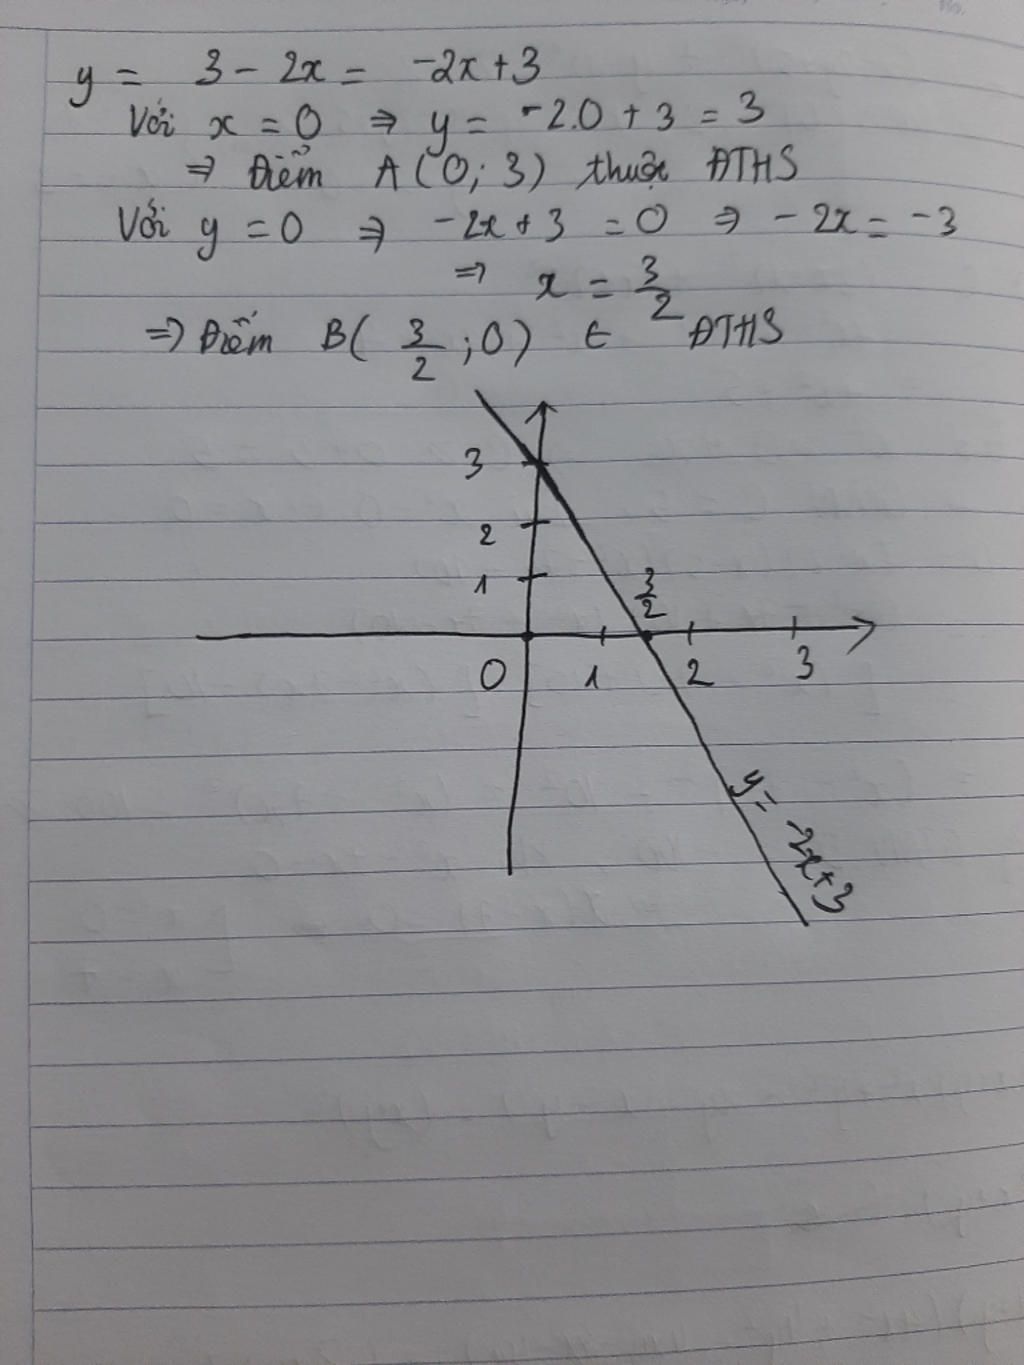 y = 3 - 2x = -2x + 3
Với x = 0 ⇒ y = -2.0 + 3 = 3
⇒ Điểm A(0; 3) thuộc ĐTHS
Với y = 0 ⇒ -2x + 3 = 0 ⇒ -2x = -3
⇒ x = 3/2
⇒ Điểm B(3/2; 0) ∈ ĐTHS
3
2
1
3/2
0 1 2 3
y = -2x+3